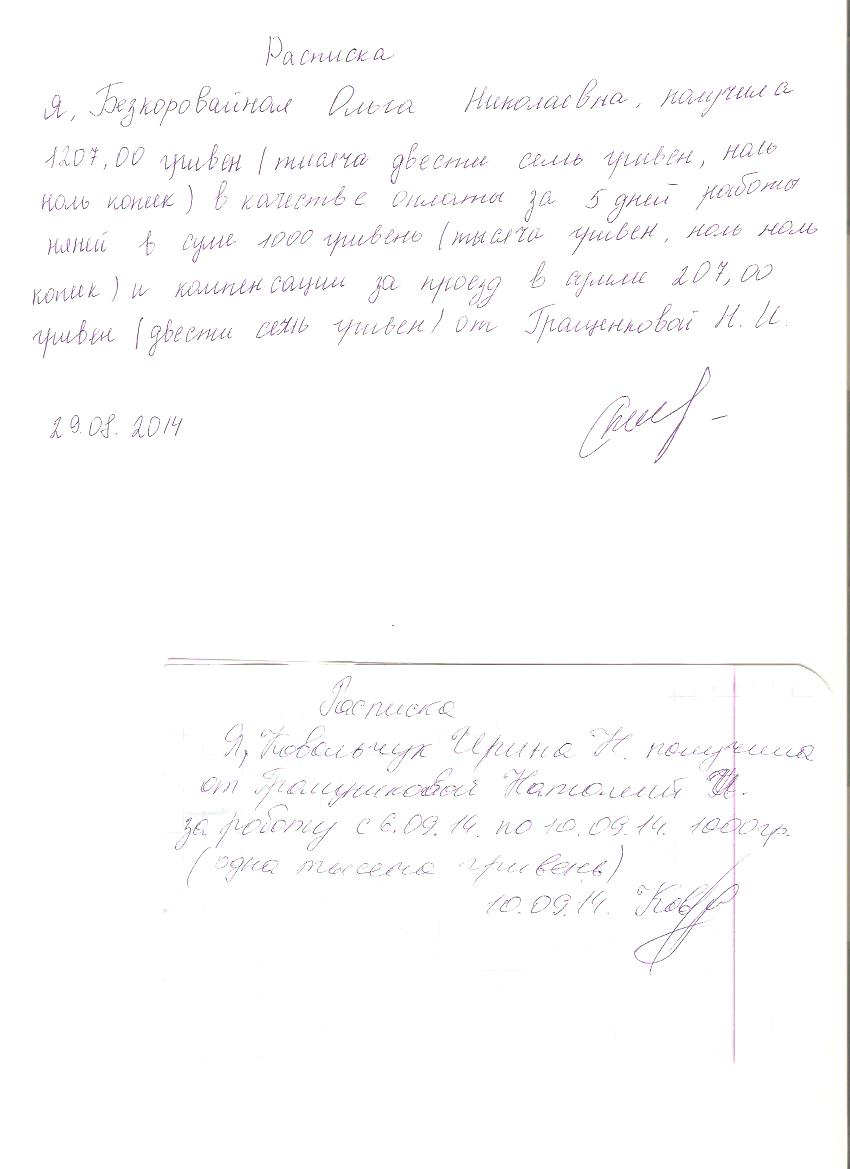 Расписка
Я, Безкоровайная Ольга Николаевна, получила
1207,00 гривен (тысяча двести семь гривен, ноль
ноль копеек) в качестве оплаты за 5 дней работы
няней в суме 1000 гривень (тысяча гривен, ноль ноль
копеек) и компенсации за проезд в сумме 207,00
гривен (двести семь гривен) от Гращенковой Н. И.
29.08.2014
Расписка
Я, Ковальчук Ирина Н. получила
от Гращенковой Наталии И.
за роботу с 6.09.14. по 10.09.14. 1000гр.
(одна тысеча гривень)
10.09.14.